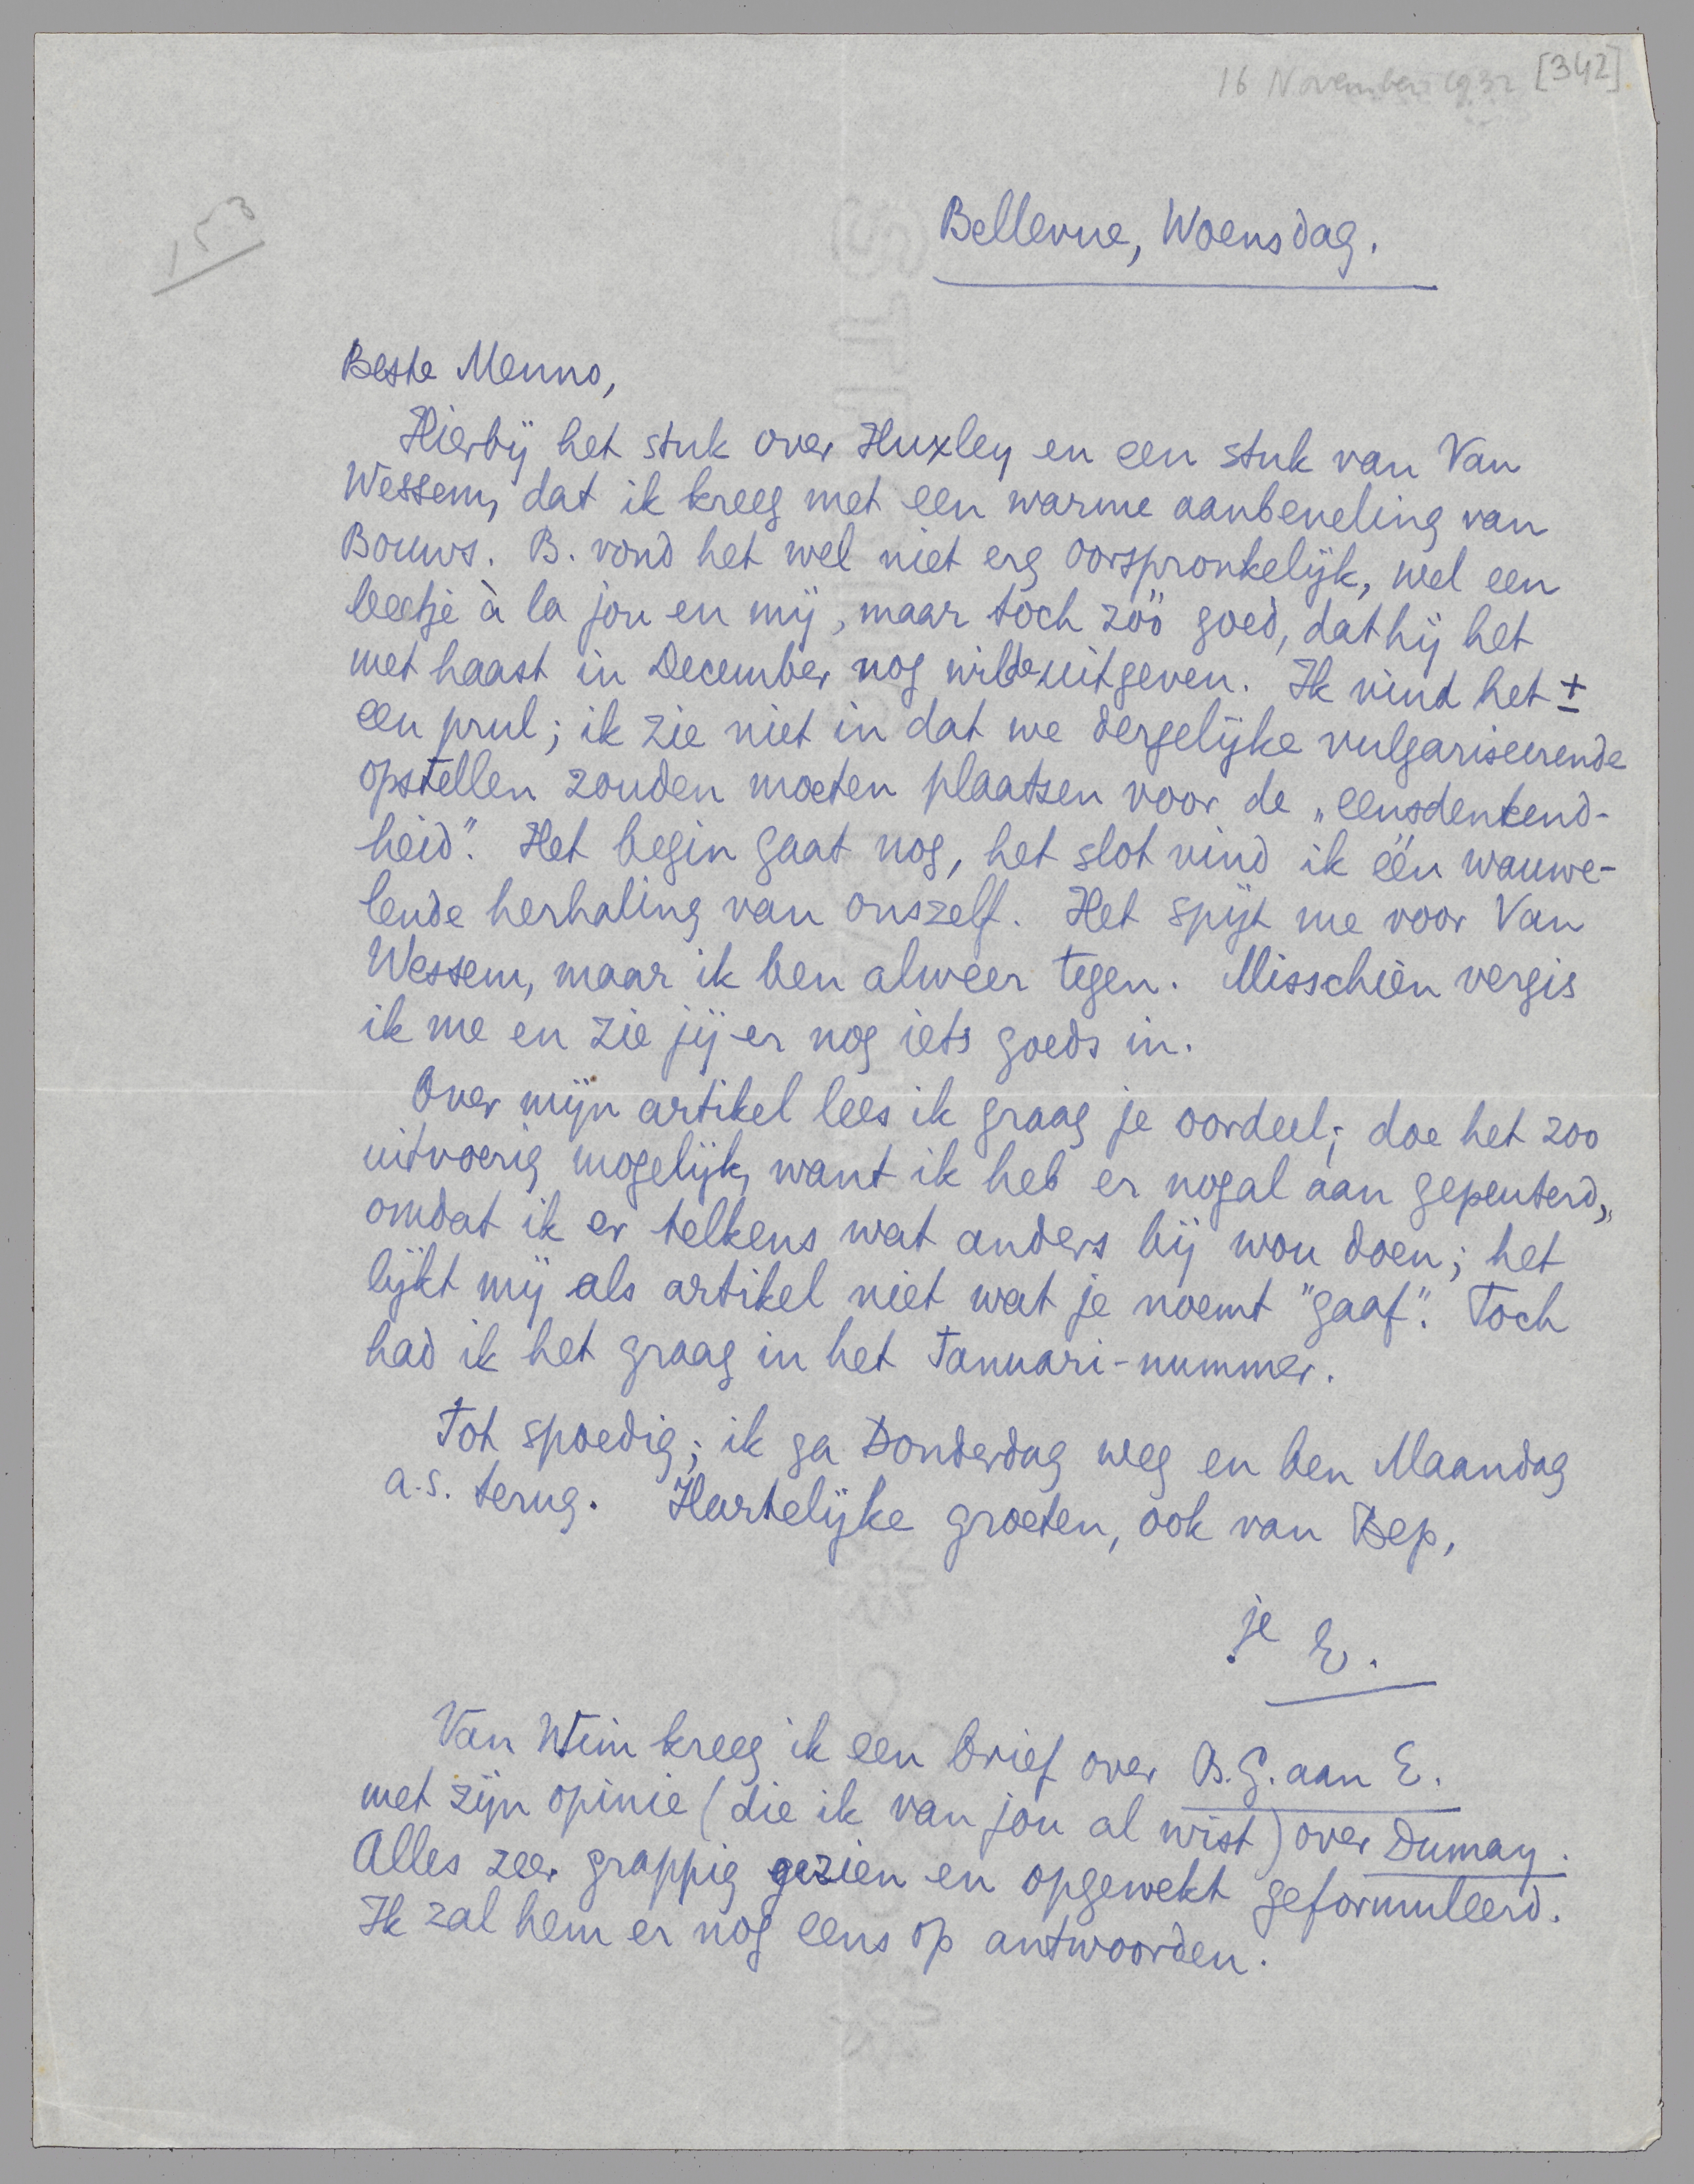 16 November 1932 [342]
153
Bellevue, Woensdag.
Beste Menno,
Hierbij het stuk over Huxley en een stuk van Van
Wessem, dat ik kreeg met een warme aanbeveling van
Bouws. B. vond het wel niet erg oorspronkelijk, wel een
beetje à la jou en mij, maar toch zóó goed, dat hij het
met haast in December nog wilde uitgeven. Ik vind het ±
een prul; ik zie niet in dat we dergelijke vulgariseerende
opstellen zouden moeten plaatsen voor de „eensdenkend-
heid”. Het begin gaat nog, het slot vind ik één wauwe-
lende herhaling van onszelf. Het spijt me voor Van
Wessem, maar ik ben alweer tegen. Misschien vergis
ik me en zie jij er nog iets goeds in.
Over mijn artikel lees ik graag je oordeel; doe het zoo
uitvoerig mogelijk, want ik heb er nogal aan gepeuterd,
omdat ik er telkens wat anders bij wou doen; het
lijkt mij als artikel niet wat je noemt "gaaf". Toch
had ik het graag in het Januari-nummer.
Tot spoedig; ik ga Donderdag weg en ben Maandag
a.s. terug. Hartelijke groeten, ook van Bep,
je E.
Van Wim kreeg ik een brief over B.G. aan E.
met zijn opinie (die ik van jou al wist) over Dumay.
Alles zeer grappig gezien en opgewekt geformuleerd.
Ik zal hem er nog eens op antwoorden.